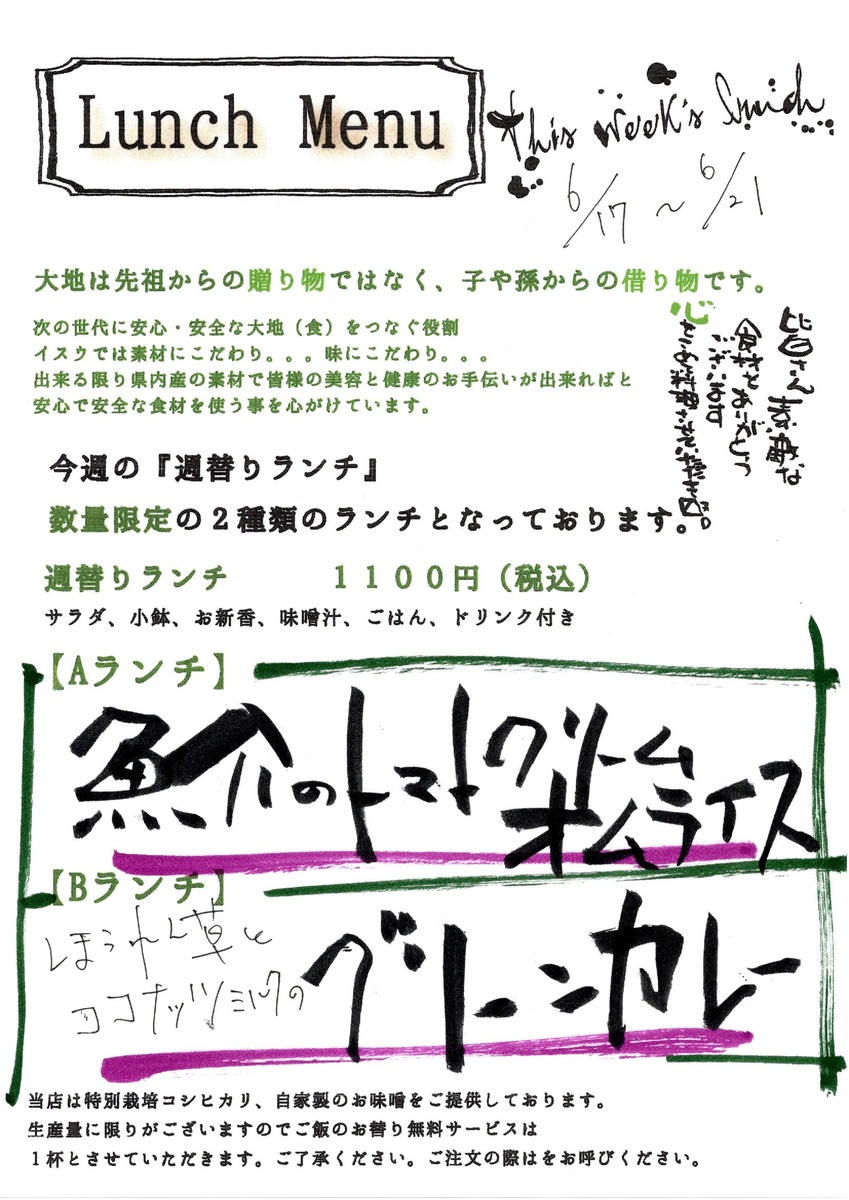 Lunch Menu
This Week's Lunch
6/17 ~ 6/21
大地は先祖からの贈り物ではなく、子や孫からの借り物です。
次の世代に安心・安全な大地（食）をつなぐ役割
イスウでは素材にこだわり。。。味にこだわり。。。
出来る限り県内産の素材で皆様の美容と健康のお手伝いが出来ればと
安心で安全な食材を使う事を心がけています。
皆さん素敵な
食材をありがとう
ございます
心をこめ料理させて頂きます。
今週の『週替りランチ』
数量限定の２種類のランチとなっております。
週替りランチ １１００円（税込）
サラダ、小鉢、お新香、味噌汁、ごはん、ドリンク付き
【Aランチ】
魚介のトマトクリーム
オムライス
【Bランチ】
ほうれん草と
ココナッツミルクの
グリーンカレー
当店は特別栽培コシヒカリ、自家製のお味噌をご提供しております。
生産量に限りがございますのでご飯のお替り無料サービスは
１杯とさせていただきます。ご了承ください。ご注文の際はをお呼びください。